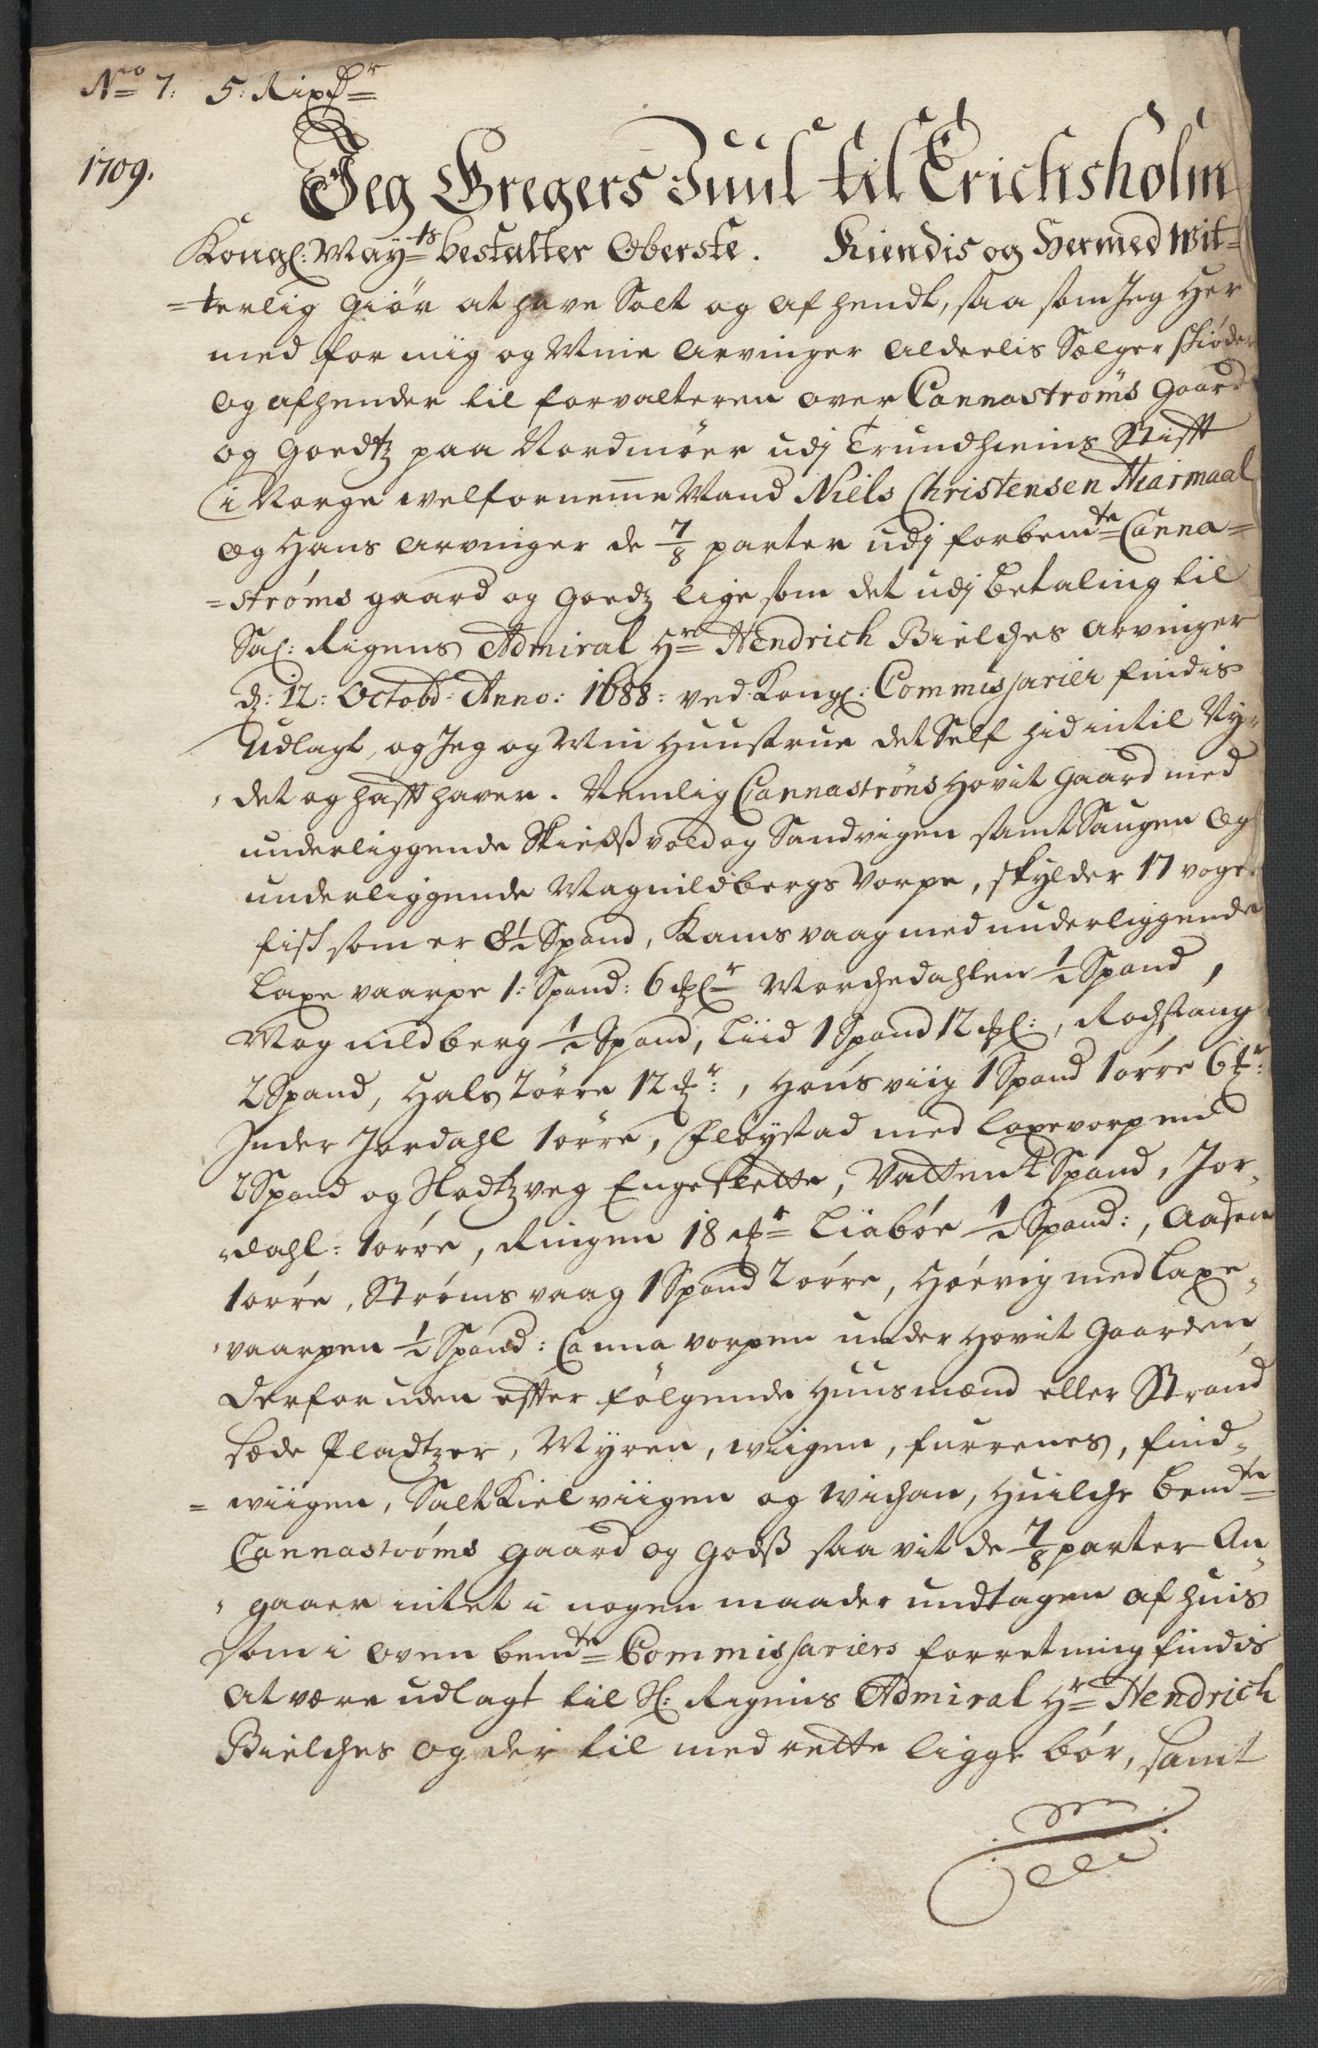 No 7. 5. Rixdr
1709.
Jeg Gregers Juul til Erichsholm
Kongl: May:ts bestalter Oberste. Kiendis og Hermed wit-
-terlig giör at have Solt og afhendt, saa som Jeg Her
med for miig og Mine Arvinger Alderlis Sælger skiöder
og afhender til forvalteren over Cannaströms Gaard
og Goedtz paa Nordmöer udj Trundhiems Stifft
i Norge welfornemme Mand Niels Christensen Hiarmaal
og Hans Arvinger de 7/8 parter udj forbemte Canna-
-ströms gaard og Goedz lige som det udj betaling til
Sal: Rigens Admiral Hr Hendrich Bielches Arvinger
d: 12: Octobr: Anno: 1688: ved Kongl: Commissarier findis
Udlagt, og Jeg og Min Huustrue det Self hid intil Ny-
det og hafft haver. Nemlig Cannaströms Hovit Gaard med
underliggende Skieds vold og Sandvigen samt Saugen og
underliggende Magnildbergs Vorpe, skylder 17 voger
fisk som er 8½ Spand, Ramsvaag med underliggende
Laxe vaarpe 1: Spand: 6 mkl:r Morchedahlen ½ Spand,
Magnildberg ½ Spand, Liid 1 Spand 12 mkl:, Rochstang
2 Spand, Hals 2 örre 12 mkr:, Honsviig 1 Spand 1 örre 6 mkr:
Inder Jordahl 1 örre, Flöystad med Laxevorpene
2 Spand og Nodtzveg Engeslette, Vatten 2 Spand, Jor-
dahl: 1 örre, Ringen 18 mkr Liaböe ½ Spand:, Aasen
1 örre, Strömsvaag 1 Spand 2 örre, Höevig med Laxe-
vaarpen ½ Spand: Canna vorpen under Hovit Gaarden
derforuden effter fölgende Huusmænd eller Strand
sæde Pladtzer, Myren, wiigen, furrenes, find-
-wiigen, Saltkielviigen og Wichan, Huilche bemte
Cannaströms Gaard og Godss saa vit de 7/8 parter An-
gaaer intet i nogen maader undtagen af huis
som i oven bemte Commissariers forretning findis
At være udlagt til Sl: Rigens Admiral Hr Hendrich
Bielches og der til med rette ligge bör, samt